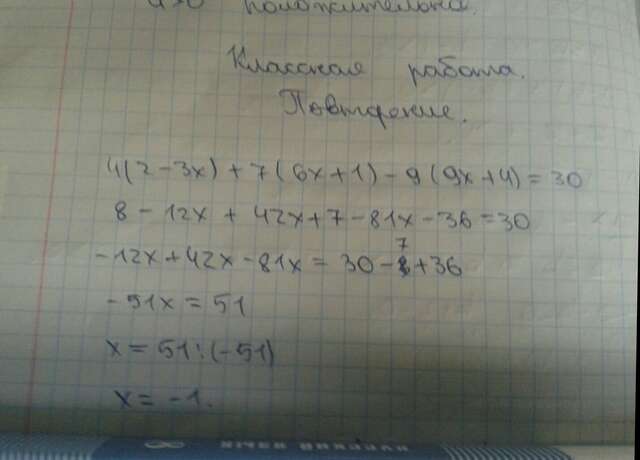 a>0 положительна.
Классная работа.
Повторение.
4(2-3x)+7(6x+1)-9(9x+4)=30
8-12x+42x+7-81x-36=30
-12x+42x-81x=30-8+36
7
-51x=51
x=51:(-51)
x=-1.